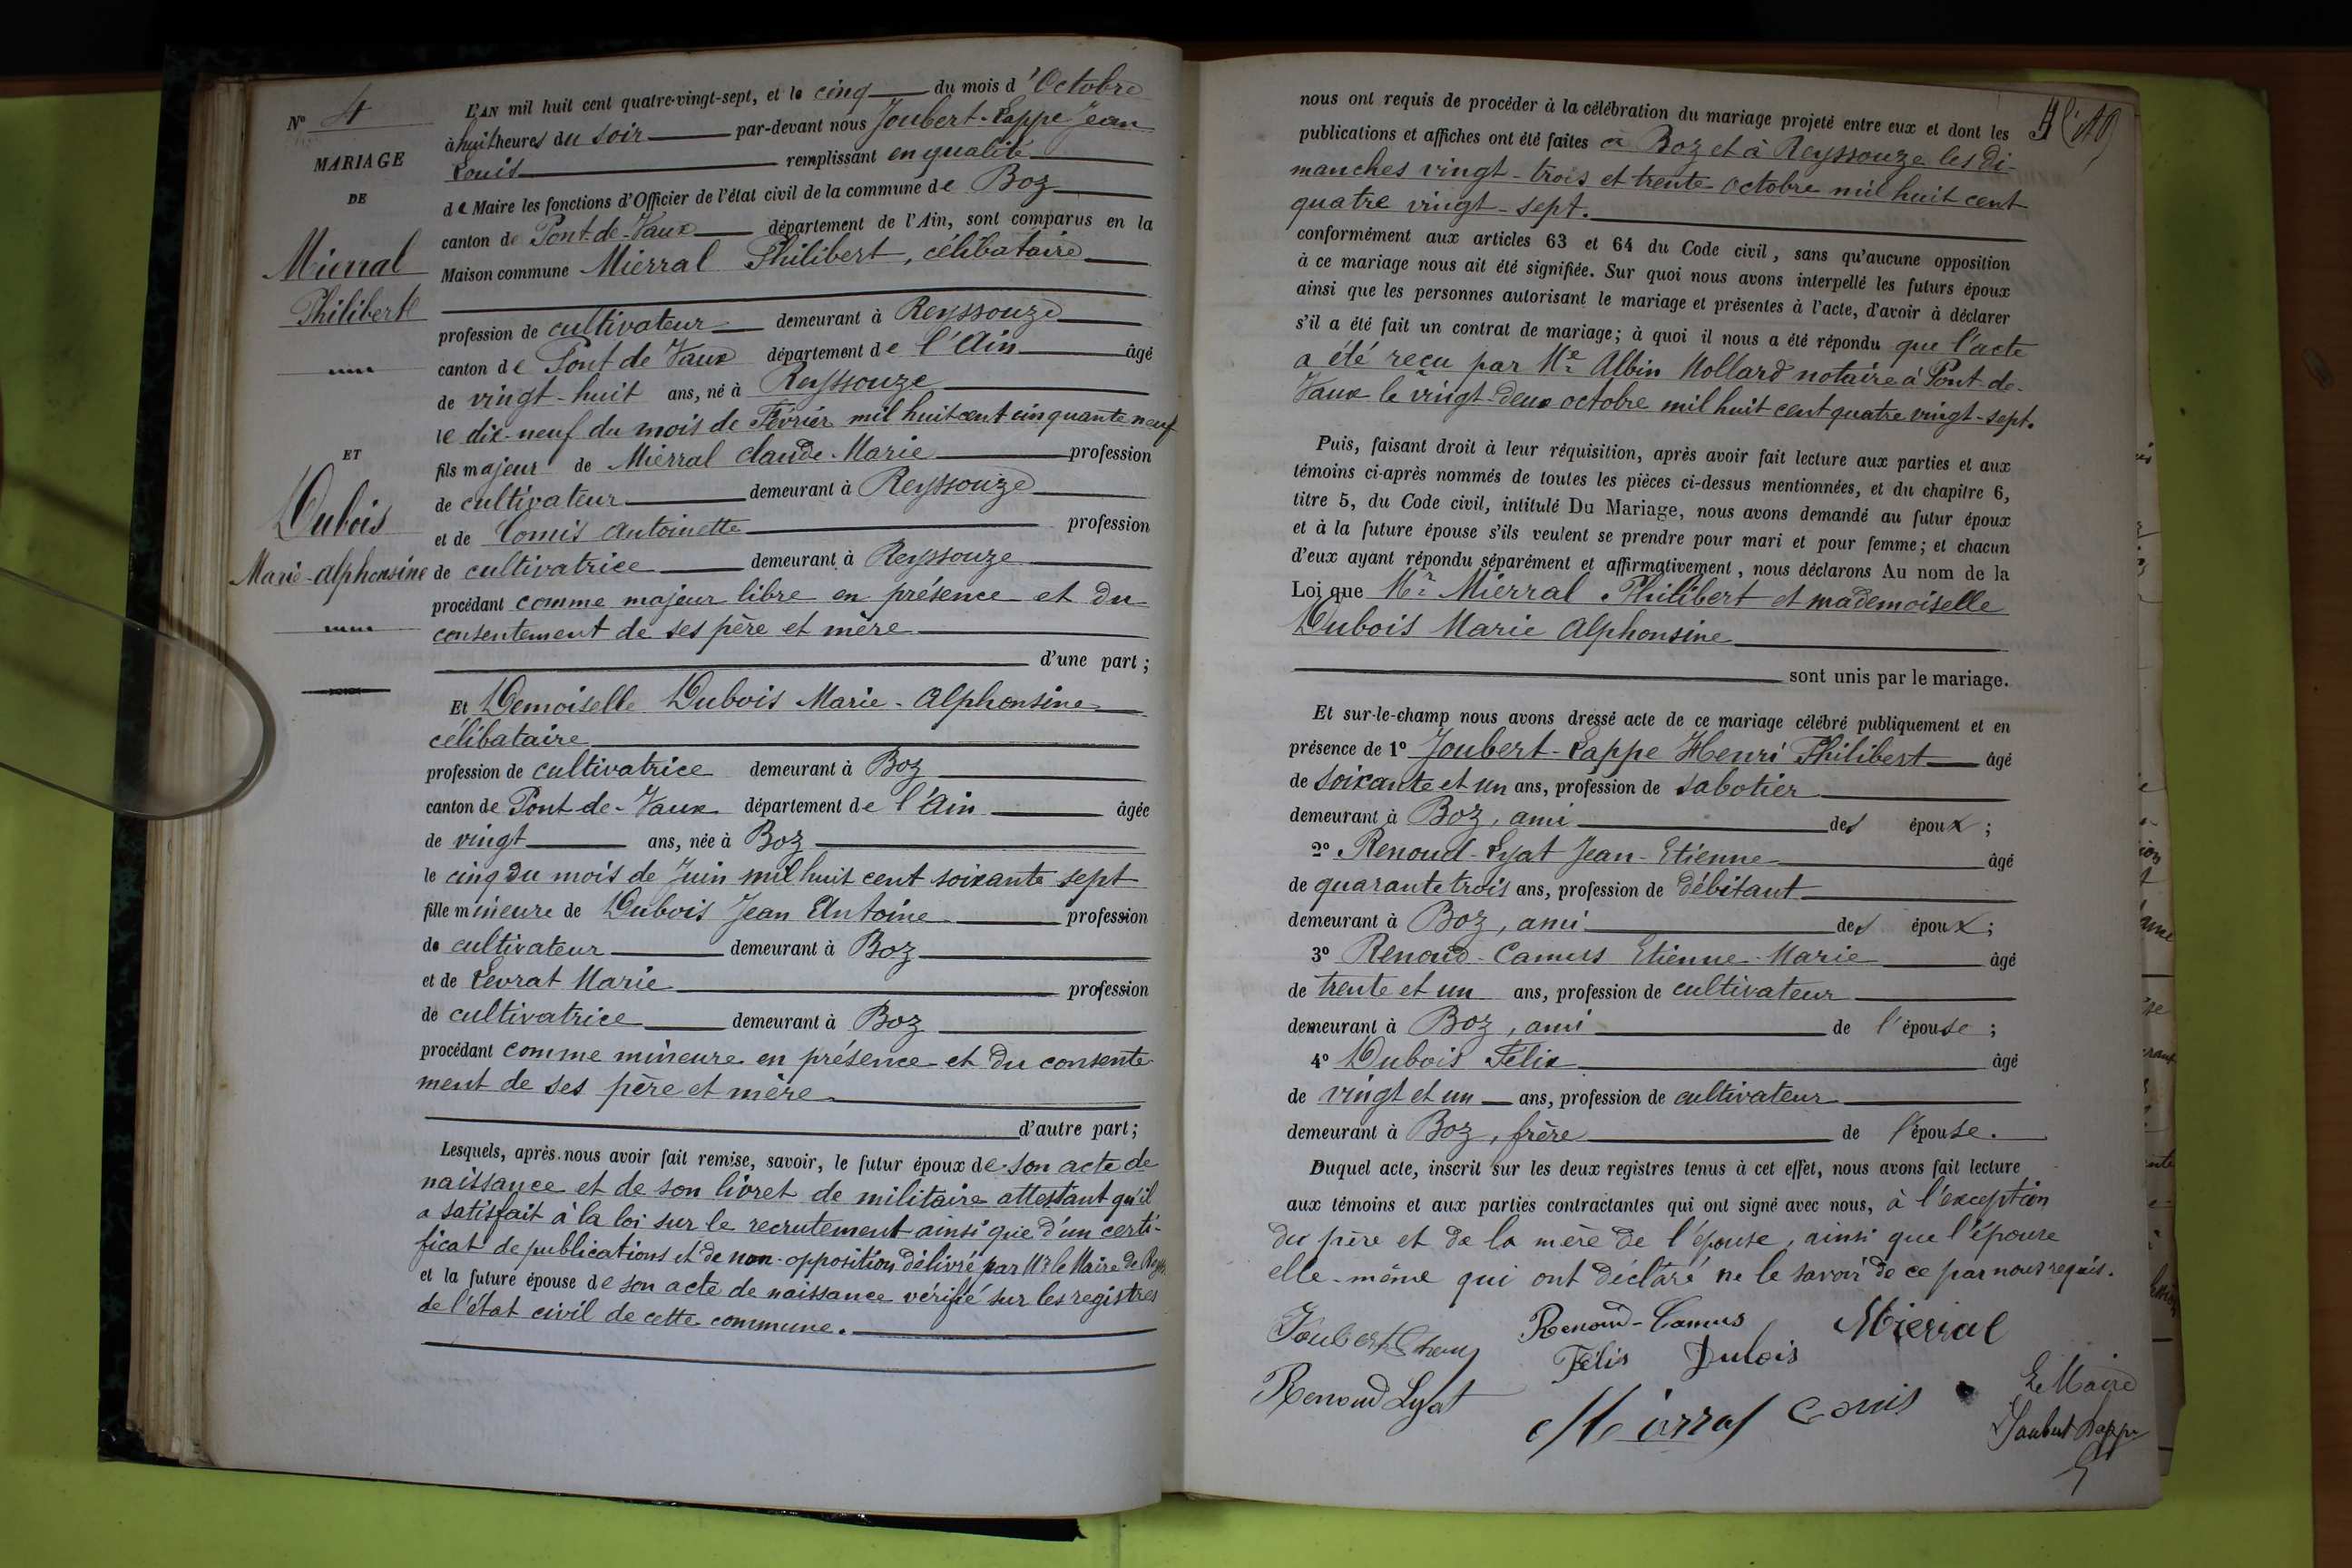 N° 4
MARIAGE
DE
Mierral
Philibert
ET
Dubois
Marie-Alphonsine
L'AN mil huit cent quatre-vingt-sept, et le cinq du mois d'Octobre
à huit heures du soir par-devant nous Joubert-Lappe Jean
Louis remplissant en qualité
de Maire les fonctions d'Officier de l'état civil de la commune de Boz
canton de Pont-de-Vaux département de l'Ain, sont comparus en la
Maison commune Mierral Philibert, célibataire
profession de cultivateur demeurant à Reyssouze
canton de Pont de Vaux département de l'Ain âgé
de vingt-huit ans, né à Reyssouze
le dix-neuf du mois de Février mil huit cent cinquante neuf
fils majeur de Mierral Claude-Marie profession
de cultivateur demeurant à Reyssouze
et de Comis Antoinette profession
de cultivatrice demeurant à Reyssouze
procédant comme majeur libre en présence et du
consentement de ses père et mère
d'une part ;
Et Demoiselle Dubois Marie-Alphonsine
célibataire
profession de cultivatrice demeurant à Boz
canton de Pont-de-Vaux département de l'Ain âgée
de vingt ans, née à Boz
le cinq du mois de Juin mil huit cent soixante sept
fille mineure de Dubois Jean Antoine profession
de cultivateur demeurant à Boz
et de Levrat Marie profession
de cultivatrice demeurant à Boz
procédant comme mineure en présence et du consente-
ment de ses père et mère
d'autre part ;
Lesquels, après nous avoir fait remise, savoir, le futur époux de son acte de
naissance et de son livret de militaire attestant qu'il
a satisfait à la loi sur le recrutement ainsi que d'un certi-
ficat de publications et de non-opposition délivré par Mr le Maire de
et la future épouse de son acte de naissance vérifié sur les registres
de l'état civil de cette commune.
nous ont requis de procéder à la célébration du mariage projeté entre eux et dont les
publications et affiches ont été faites à Boz et à Reyssouze les di-
manches vingt-trois et trente octobre mil huit cent
quatre vingt-sept.
conformément aux articles 63 et 64 du Code civil, sans qu'aucune opposition
à ce mariage nous ait été signifiée. Sur quoi nous avons interpellé les futurs époux
ainsi que les personnes autorisant le mariage et présentes à l'acte, d'avoir à déclarer
s'il a été fait un contrat de mariage ; à quoi il nous a été répondu que l'acte
a été reçu par Me Albin Mollard notaire à Pont-de-
Vaux le vingt-deux octobre mil huit cent quatre vingt-sept.
Puis, faisant droit à leur réquisition, après avoir fait lecture aux parties et aux
témoins ci-après nommés de toutes les pièces ci-dessus mentionnées, et du chapitre 6,
titre 5, du Code civil, intitulé Du Mariage, nous avons demandé au futur époux
et à la future épouse s'ils veulent se prendre pour mari et pour femme ; et chacun
d'eux ayant répondu séparément et affirmativement, nous déclarons Au nom de la
Loi que Mr Mierral Philibert et mademoiselle
Dubois Marie Alphonsine
sont unis par le mariage.
Et sur-le-champ nous avons dressé acte de ce mariage célébré publiquement et en
présence de 1° Joubert-Lappe Henri Philibert âgé
de soixante et un ans, profession de sabotier
demeurant à Boz, ami des époux ;
2° Renoud-Lyat Jean-Etienne âgé
de quarante trois ans, profession de débitant
demeurant à Boz, ami des époux ;
3° Renoud-Camus Etienne-Marie âgé
de trente et un ans, profession de cultivateur
demeurant à Boz, ami de l'épouse ;
4° Dubois Félix âgé
de vingt et un ans, profession de cultivateur
demeurant à Boz, frère de l'épouse.
Duquel acte, inscrit sur les deux registres tenus à cet effet, nous avons fait lecture
aux témoins et aux parties contractantes qui ont signé avec nous, à l'exception
du père et de la mère de l'épouse, ainsi que l'épouse
elle-même qui ont déclaré ne le savoir de ce par nous requis.
Renoud-Camus Mierral
Félix Dubois
Renoud Lyat
Mierral Comis
Le Maire
Joubert Lappe